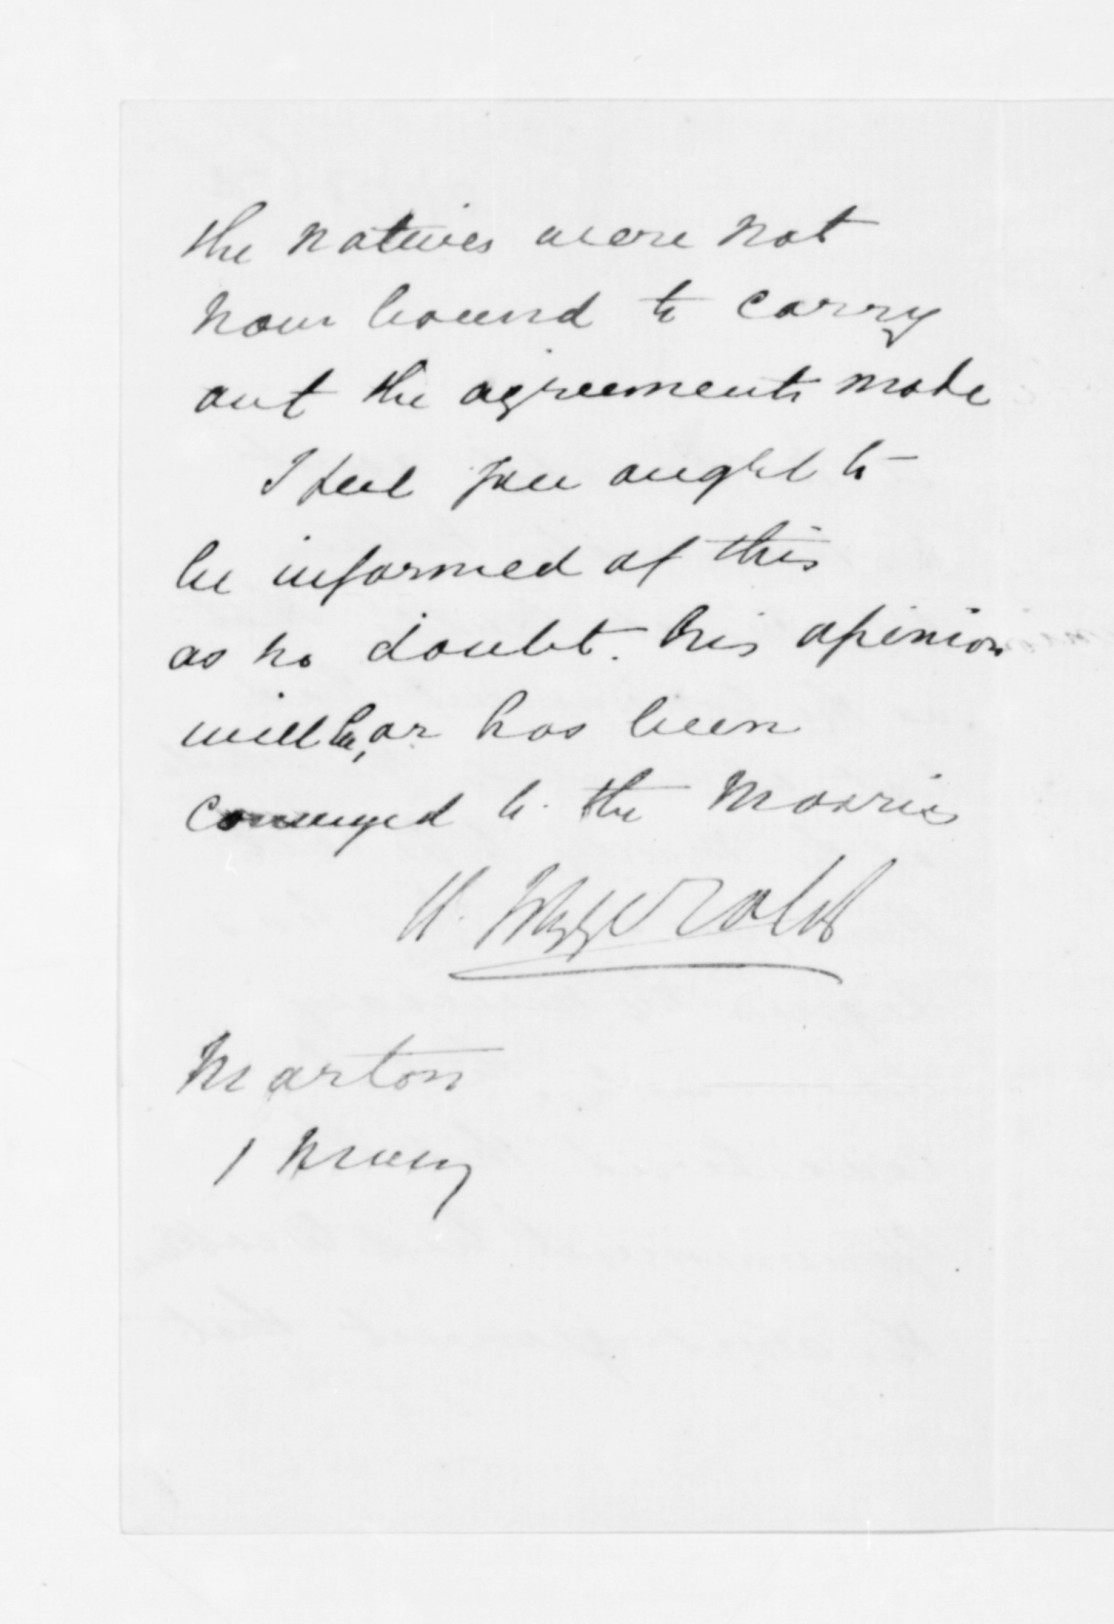 the natives were not
now bound to carry
out the agreements made
I feel you ought to
be informed of this
as no doubt his opinion
will be, or has been
conveyed to the Maories
W. Fitzgerald
Marton
1 May